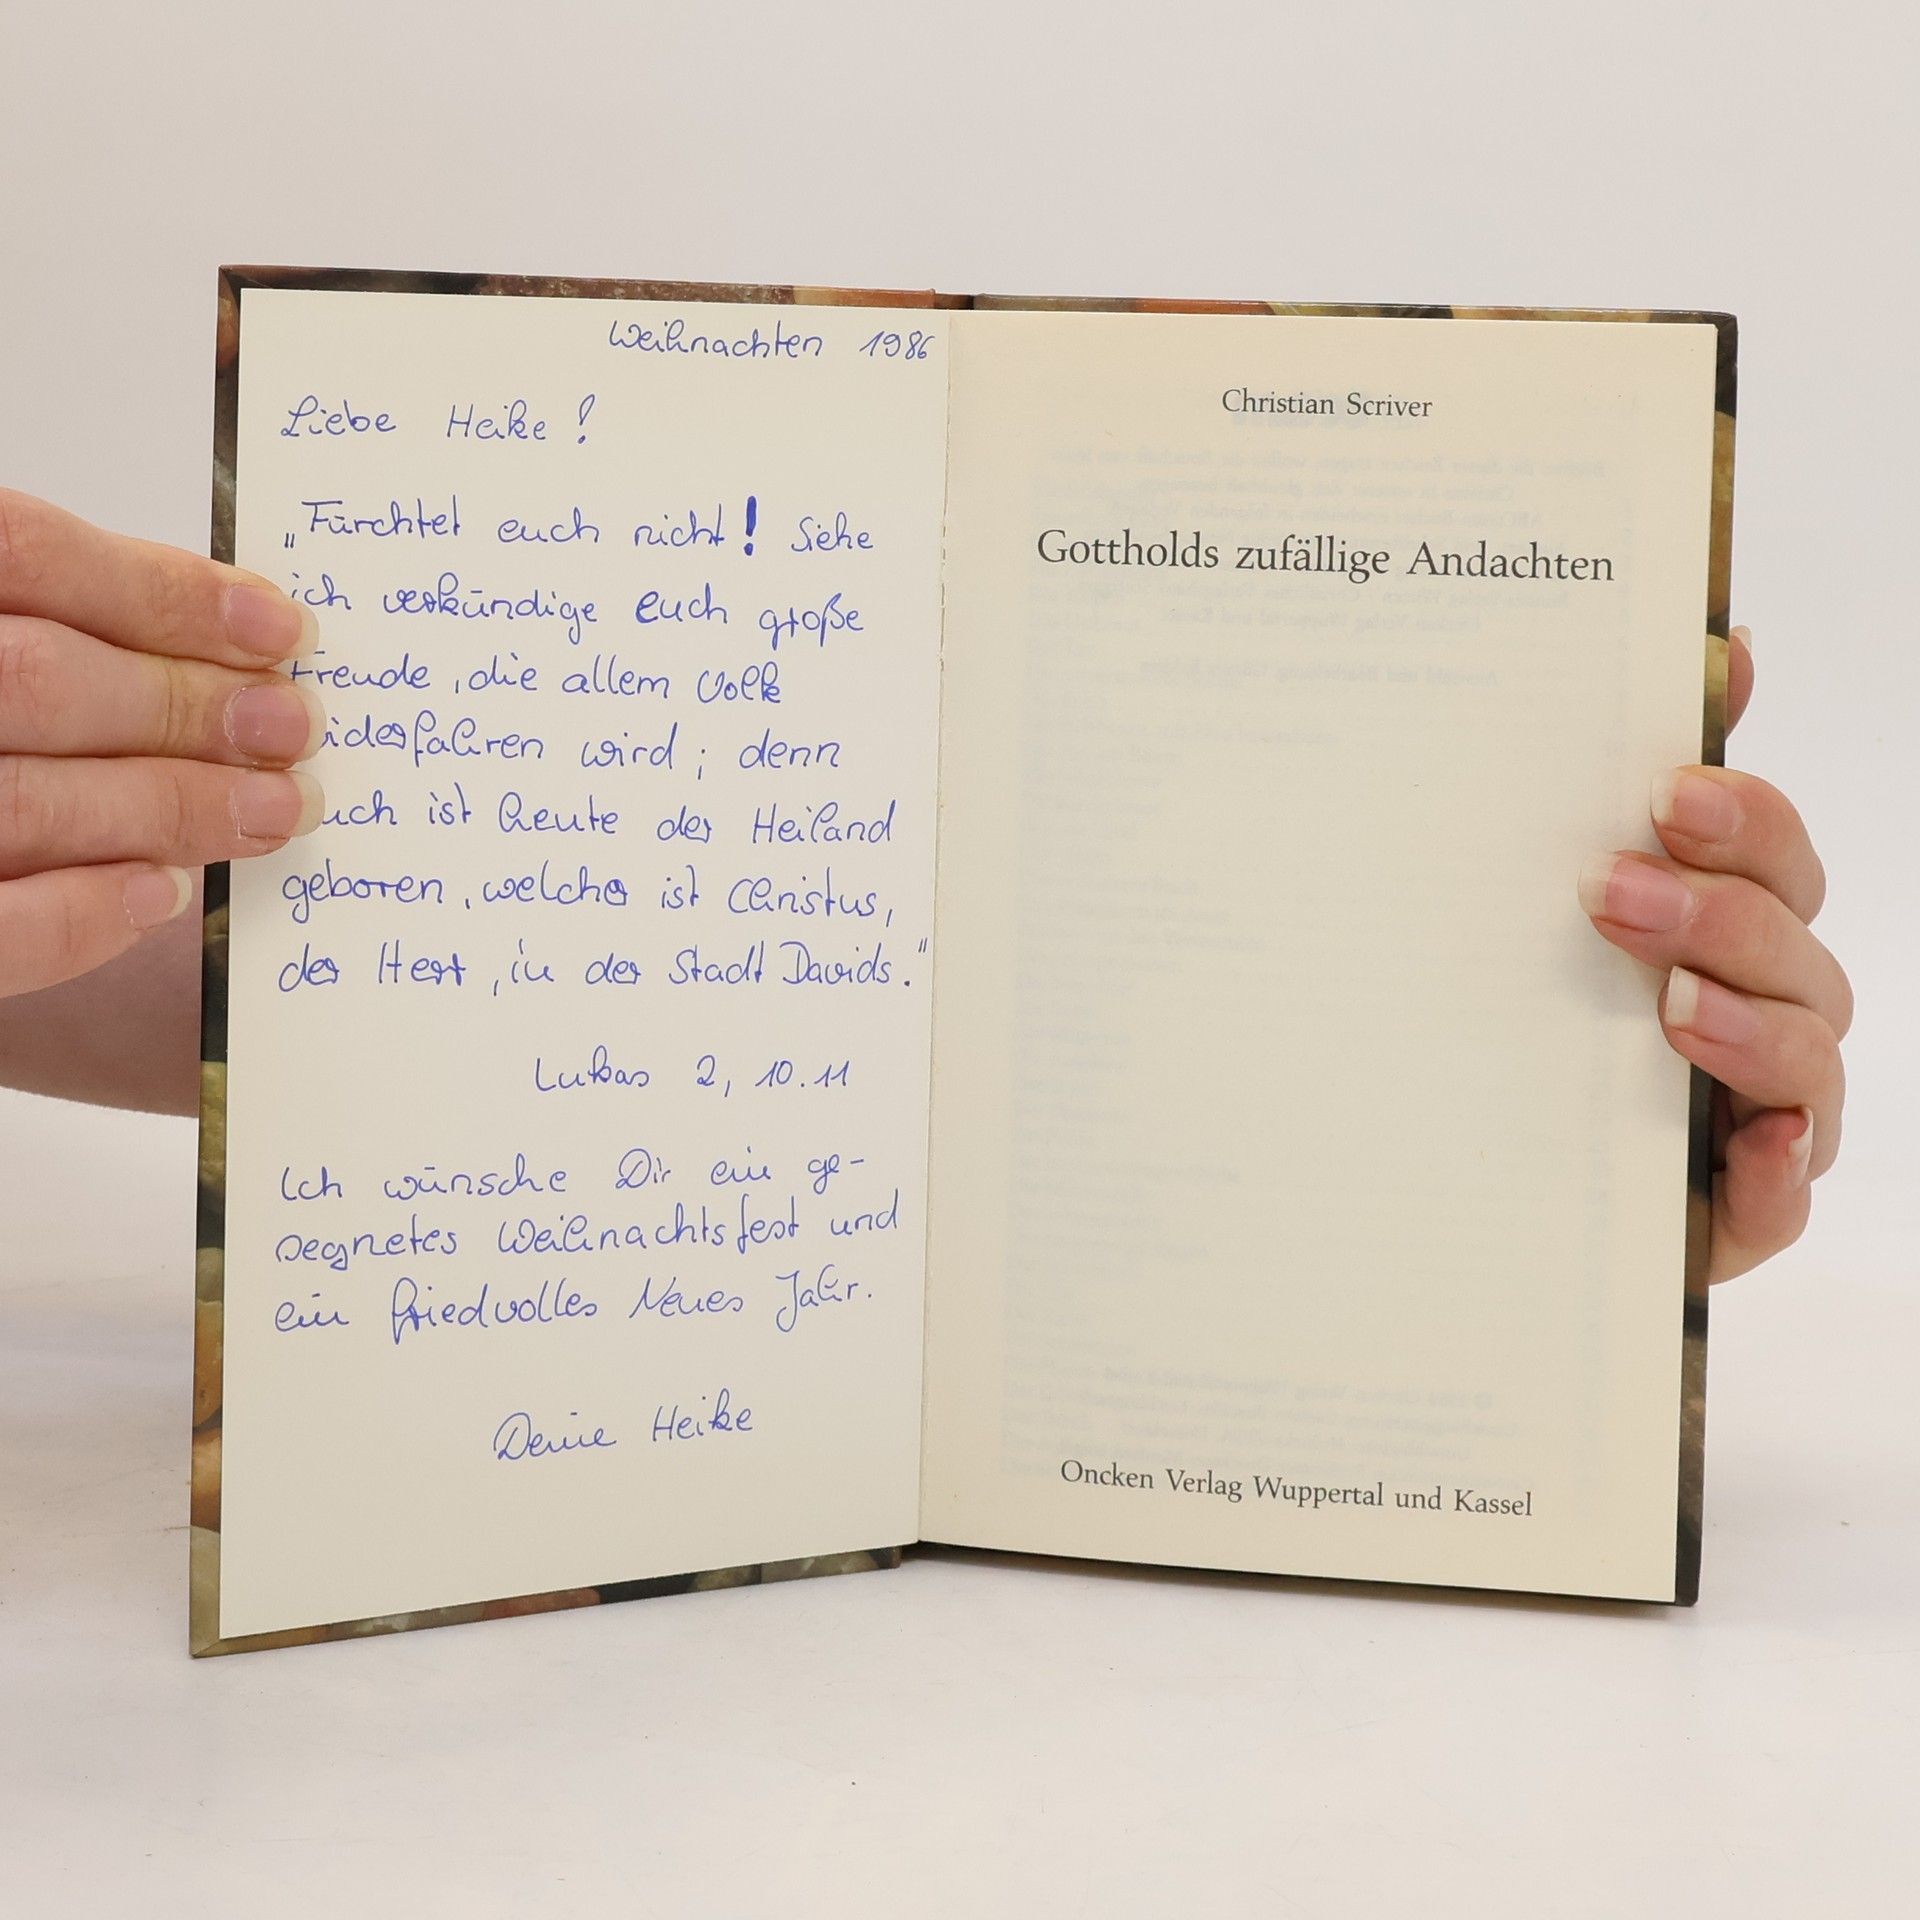 Weihnachten 1986
Liebe Heike!
„Fürchtet euch nicht! Siehe
ich verkündige euch große
Freude, die allem Volk
widerfahren wird; denn
euch ist heute der Heiland
geboren, welcher ist Christus,
der Herr, in der Stadt Davids."
Lukas 2, 10.11
Ich wünsche Dir ein ge-
segnetes Weihnachtsfest und
ein friedvolles Neues Jahr.
Deine Heike
Christian Scriver
Gottholds zufällige Andachten
Oncken Verlag Wuppertal und Kassel